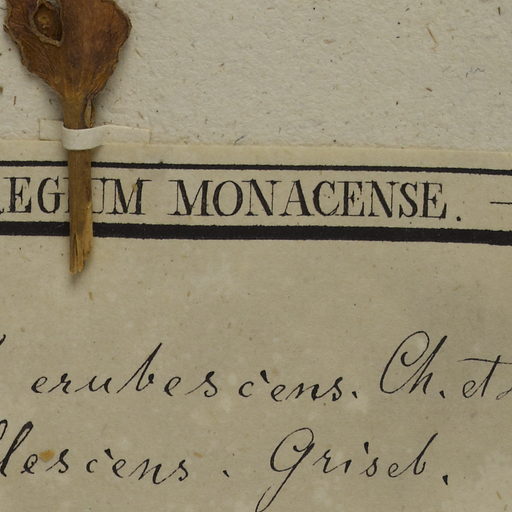 REGIUM MONACENSE. —
erubescens. Ch. et
llescens. Griseb.